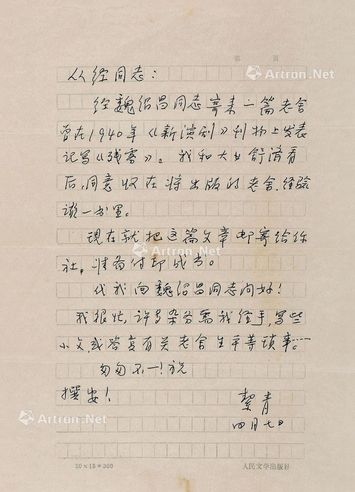 从经同志：
经魏绍昌同志寄来一篇老舍
曾在1940年《新演剧》刊物上发表
记写《残雾》。我和大女舒济看
后，同意收在将出版的老舍经验
谈一书里。
现在就把这篇文章邮寄给你
社，准备付印成书。
代我向魏绍昌同志问好！
我很忙，许多杂分需我经手，写些
小文，或答复有关老舍生平等琐事…
匆匆不一！祝
撰安！
絜青
四月七日
20×15=300
人民文学出版社
Artron.Net
Artron.Net
Artron.Net
Artron.Net